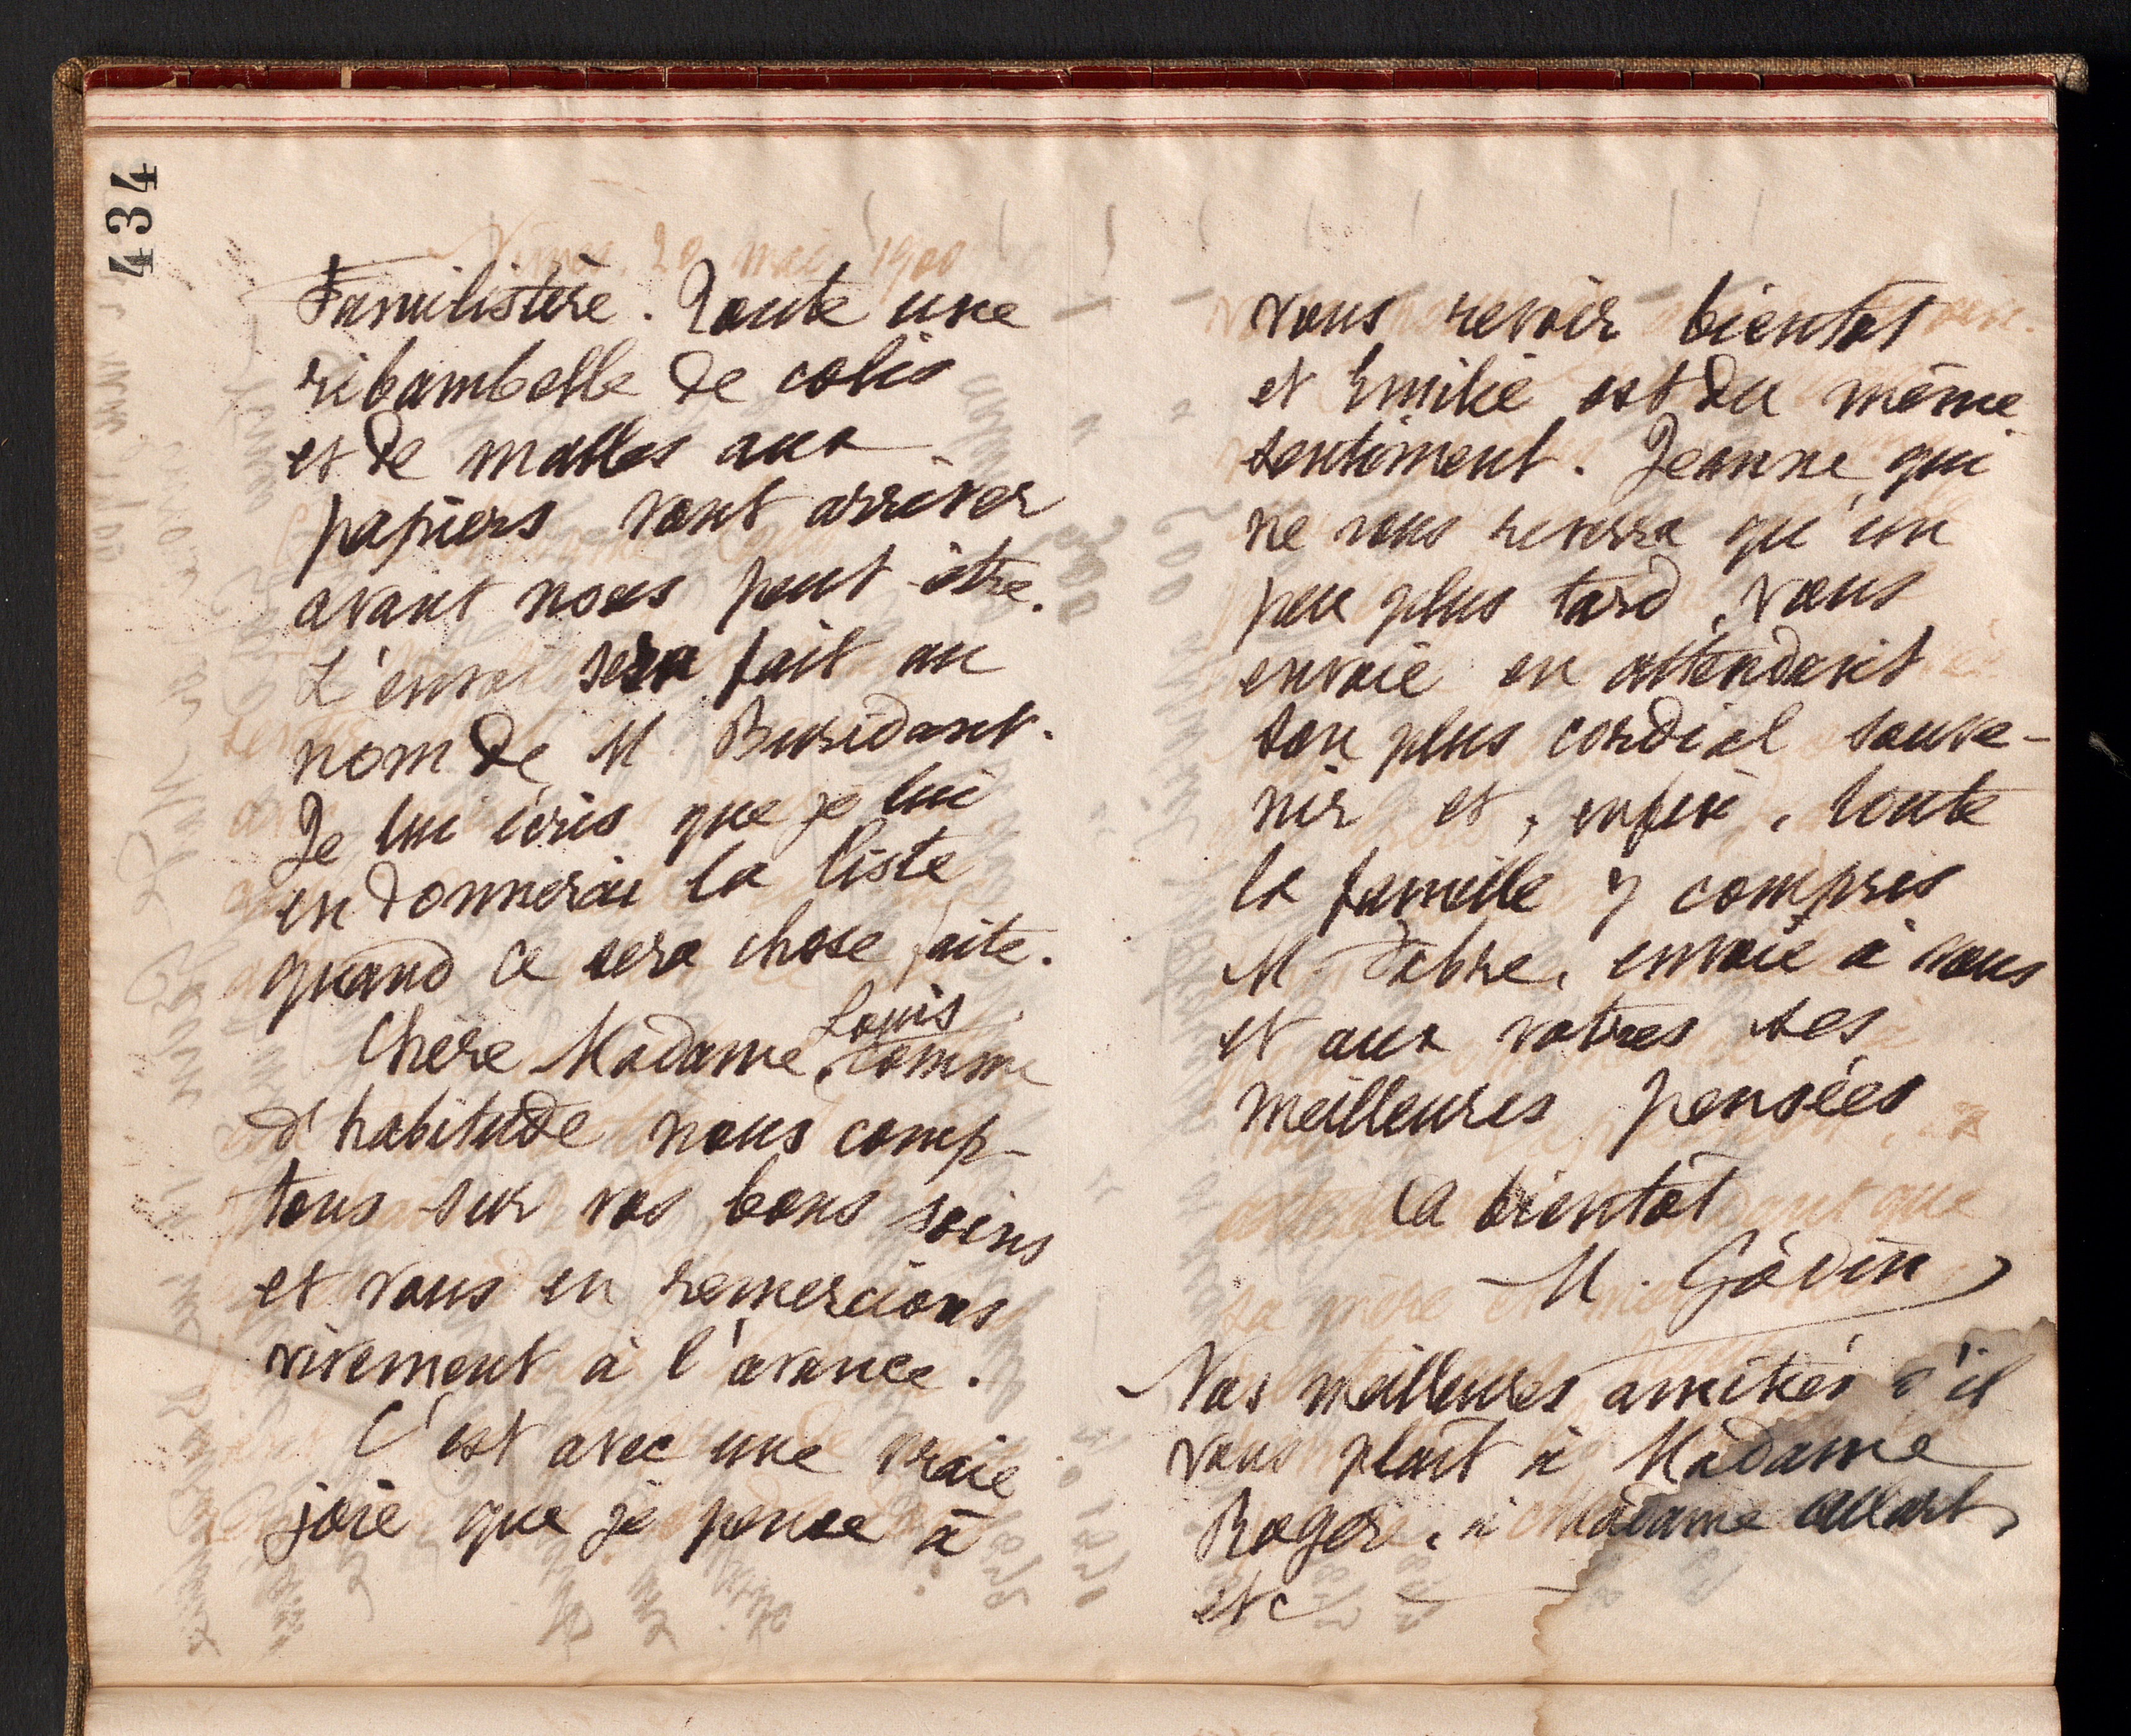 434
Familistère. Toute une
ribambelle de colis
et de malles aux
papiers vont arriver
avant nous peut-être.
L'envoi sera fait au
nom de M. Buridant.
Je lui écris que je lui
en donnerai la liste
quand ce sera chose faite.
Chère Madame Louis, comme
d'habitude nous comp-
tons sur vos bons soins
et vous en remercions
vivement à l'avance.
C'est avec une vraie
joie que je pense à
vous revoir bientôt
et Emilie est du même
sentiment. Jeanne qui
ne vous reverra qu'un
peu plus tard, vous
envoie en attendant
son plus cordial souve-
nir et, enfin, toute
la famille y compris
M. Fabre, envoie à vous
et aux vôtres ses
meilleures pensées
A bientôt
M. Godin
Nos meilleures amitiés s'il
vous plaît à Madame
Roger, à Madame Allart,
etc